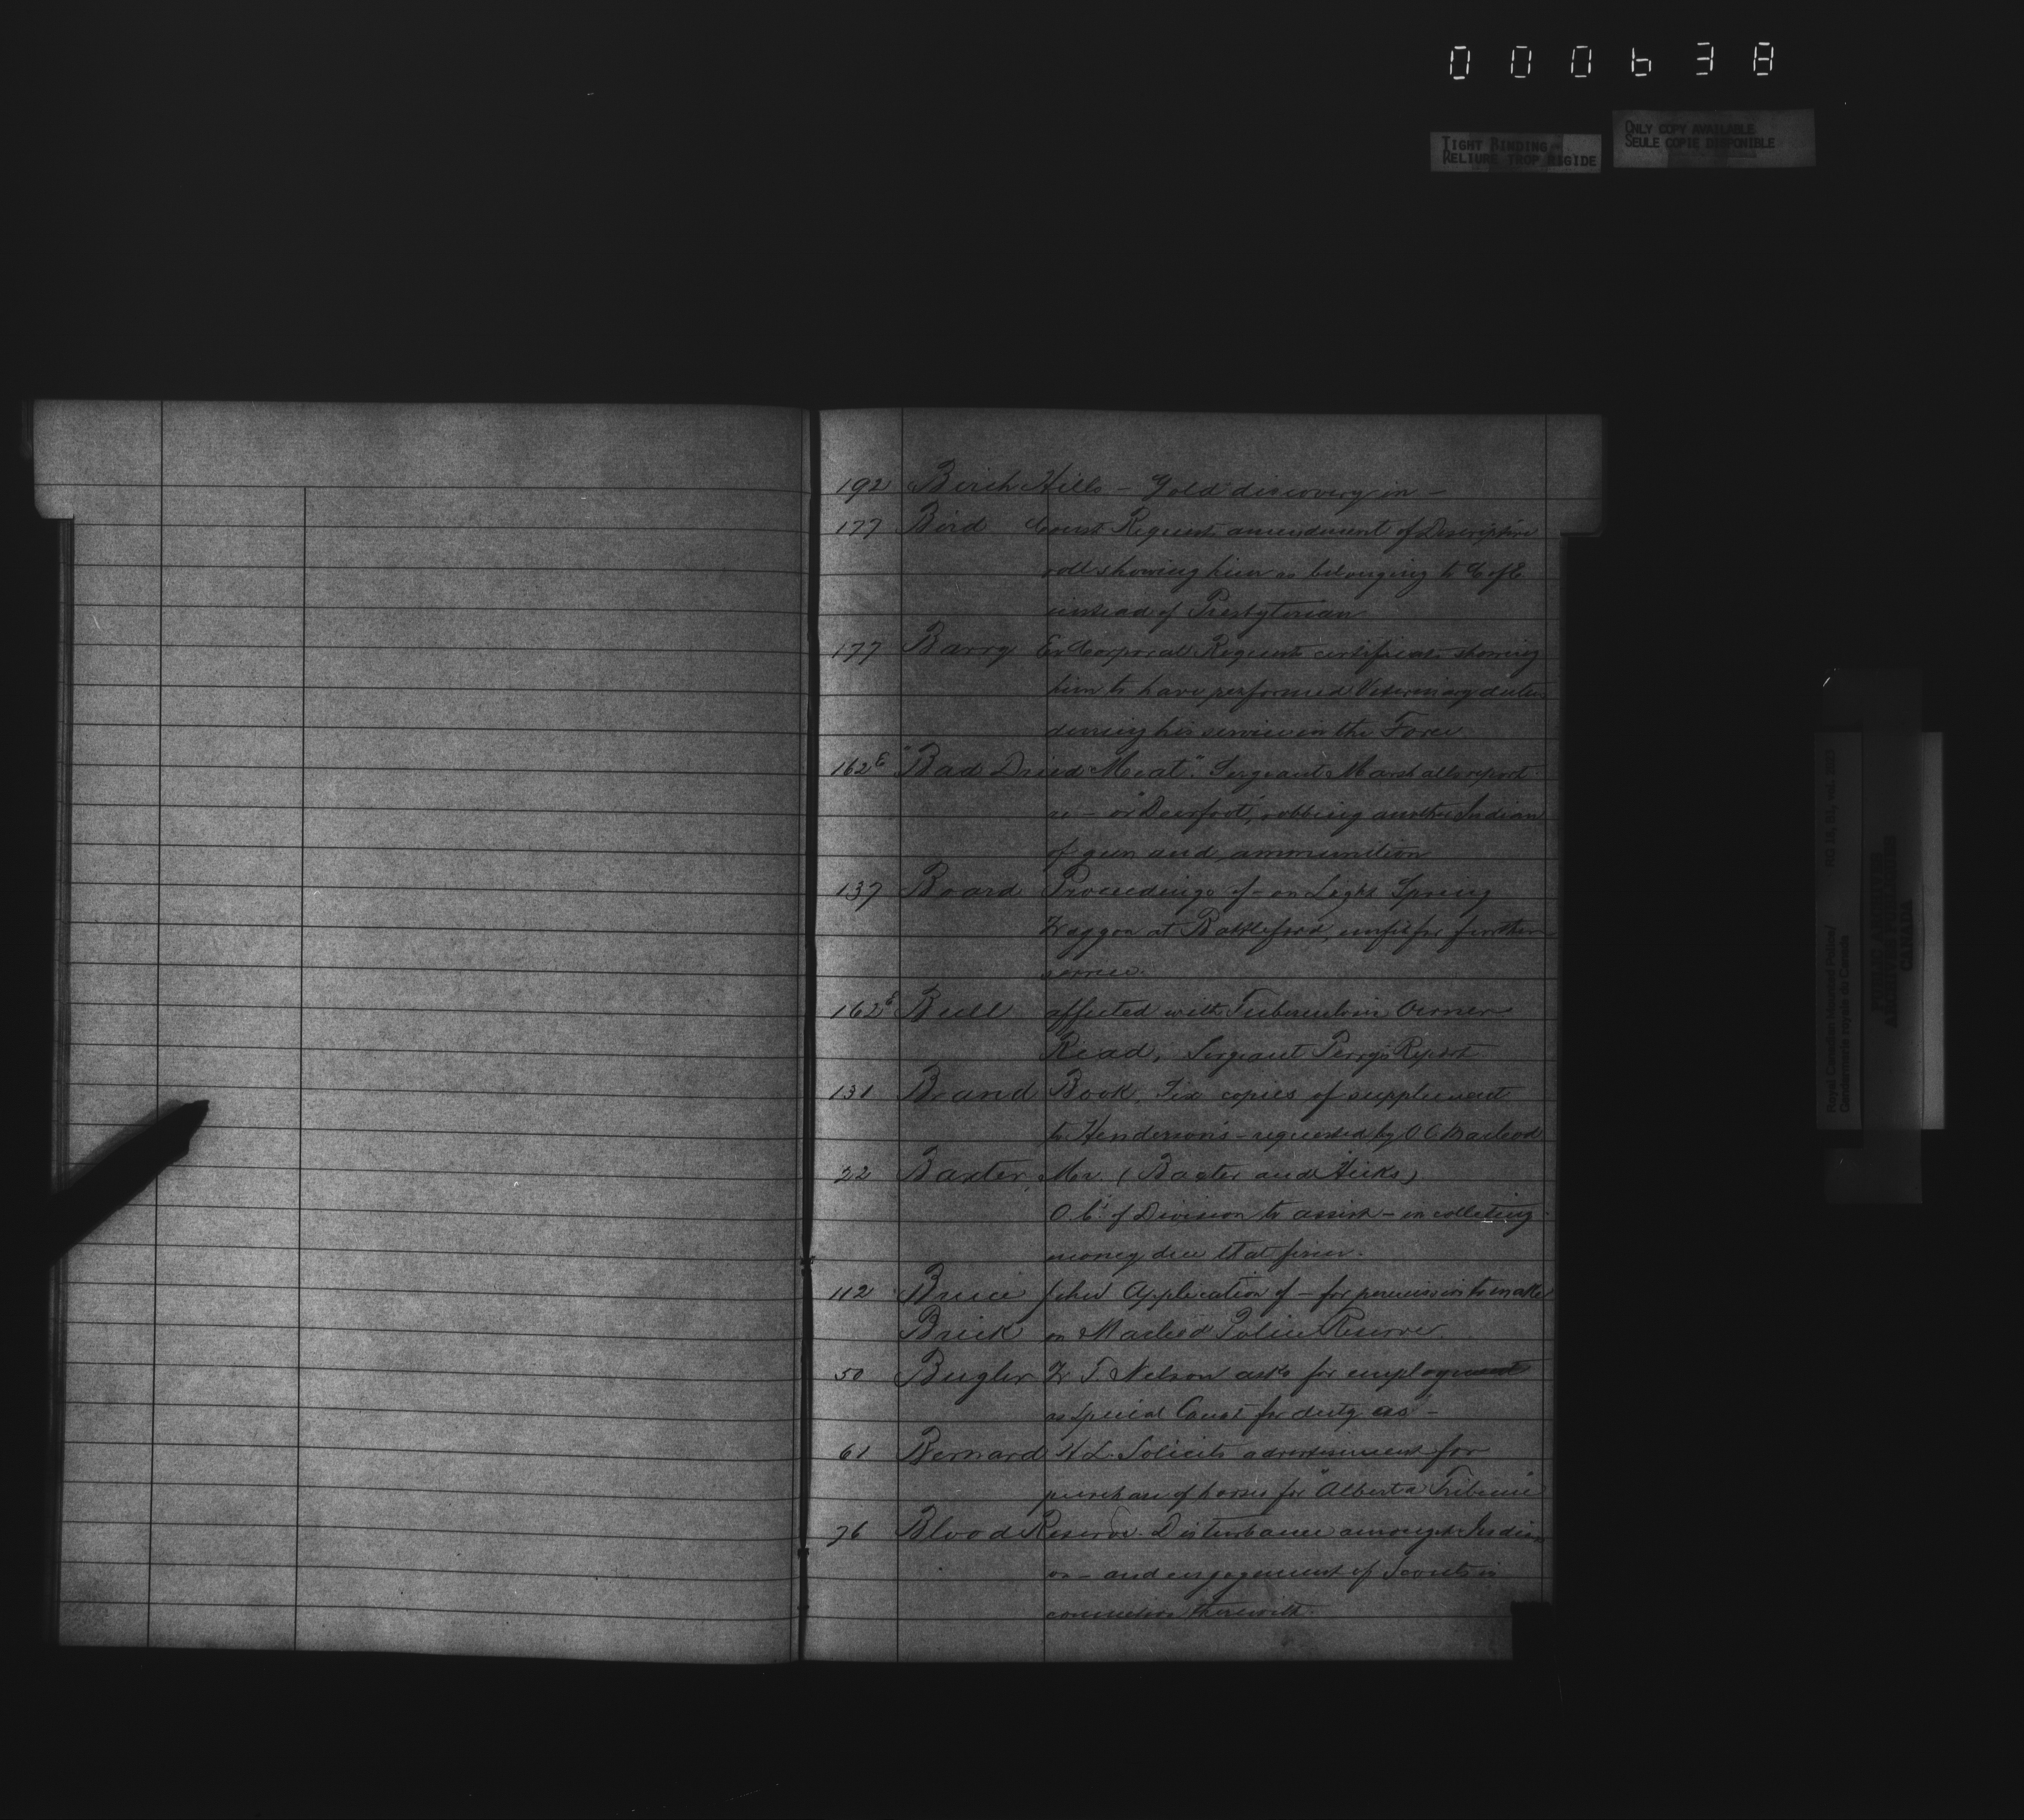 000638
TIGHT BINDING
RELIURE TROP RIGIDE
ONLY COPY AVAILABLE
SEULE COPIE DISPONIBLE
192 Birch Hills - Gold discovery in -
177 Bird Const Requests amendment of Descriptive
roll showing him as belonging to C of E
instead of Presbyterian
177 Barry Ex Corporal Requests certificate showing
him to have performed Veterinary duties
during his service in the Force
162E "Bad Dried Meat". Sergeant Marshalls report
re - or "Deerfoot", robbing another Indian
of gun and ammunition
137 Board Proceedings of - on Light Spring
Waggon at Battleford, unfit for further
service.
162E Bull affected with Tuberculosis Owner
Read, Sergeant Perry's Report
131 Brand Book, Six copies of supplement
to Henderson's - requested by O C Macleod
22 Baxter, Mr. (Baxter and Hicks)
O.C. of Division to assist - in colleting
money due that firm.
112 Bruce John Application of - for permission to make
Brick on Macleod Police Reserve.
50 Bugler W T. Nelson asks for employment
as Special Const for duty as -
61 Bernard H L. Solicits advertisement for
purchase of horses for "Alberta Tribune"
76 Blood Reserve. Disturbance amongst Indians
on - and engagement of Scouts in
connection therewith.
Royal Canadian Mounted Police/
Gendarmerie royale du Canada
PUBLIC ARCHIVES
ARCHIVES PUBLIQUES
CANADA